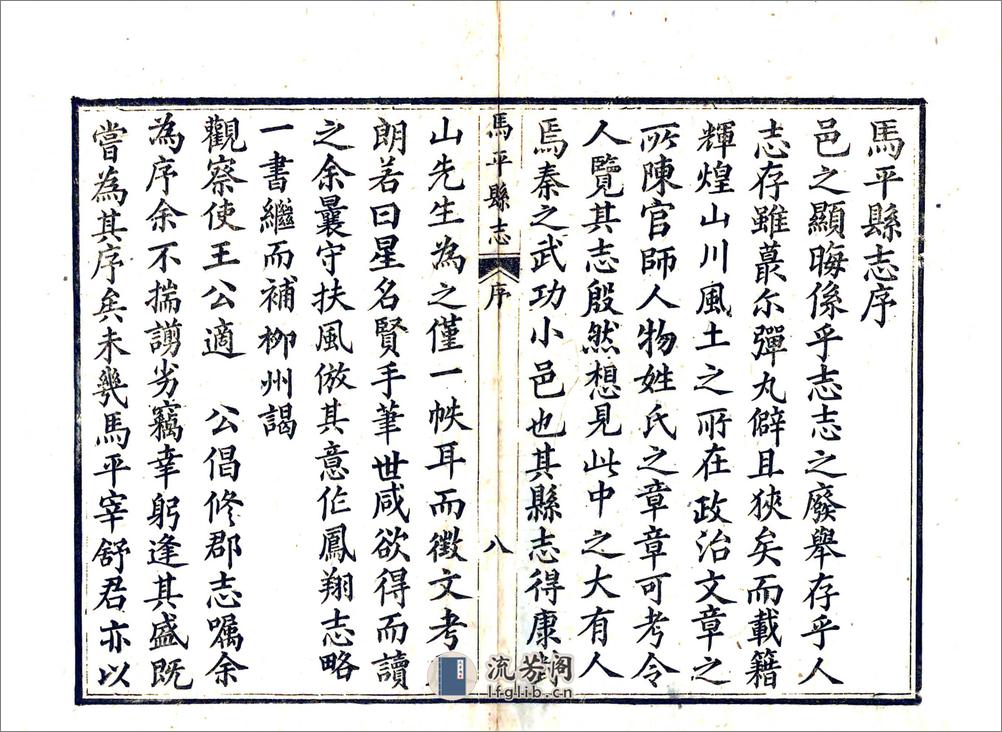 馬平縣志序
邑之顯晦係乎志志之廢舉存乎人
志存雖蕞尔彈丸僻且狹矣而載籍
輝煌山川風土之所在政治文章之
所陳官師人物姓氏之章章可考令
人覽其志殷然想見此中之大有人
焉秦之武功小邑也其縣志得康
馬平縣志
序
八
山先生為之僅一帙耳而徵文考
朗若日星名賢手筆世咸欲得而讀
之余曩守扶風倣其意作鳳翔志略
一書繼而補柳州謁
觀察使王公適 公倡修郡志嘱余
為序余不揣謭劣竊幸躬逢其盛既
嘗為其序矣未幾馬平宰舒君亦以
流芳阁
lfglib.cn